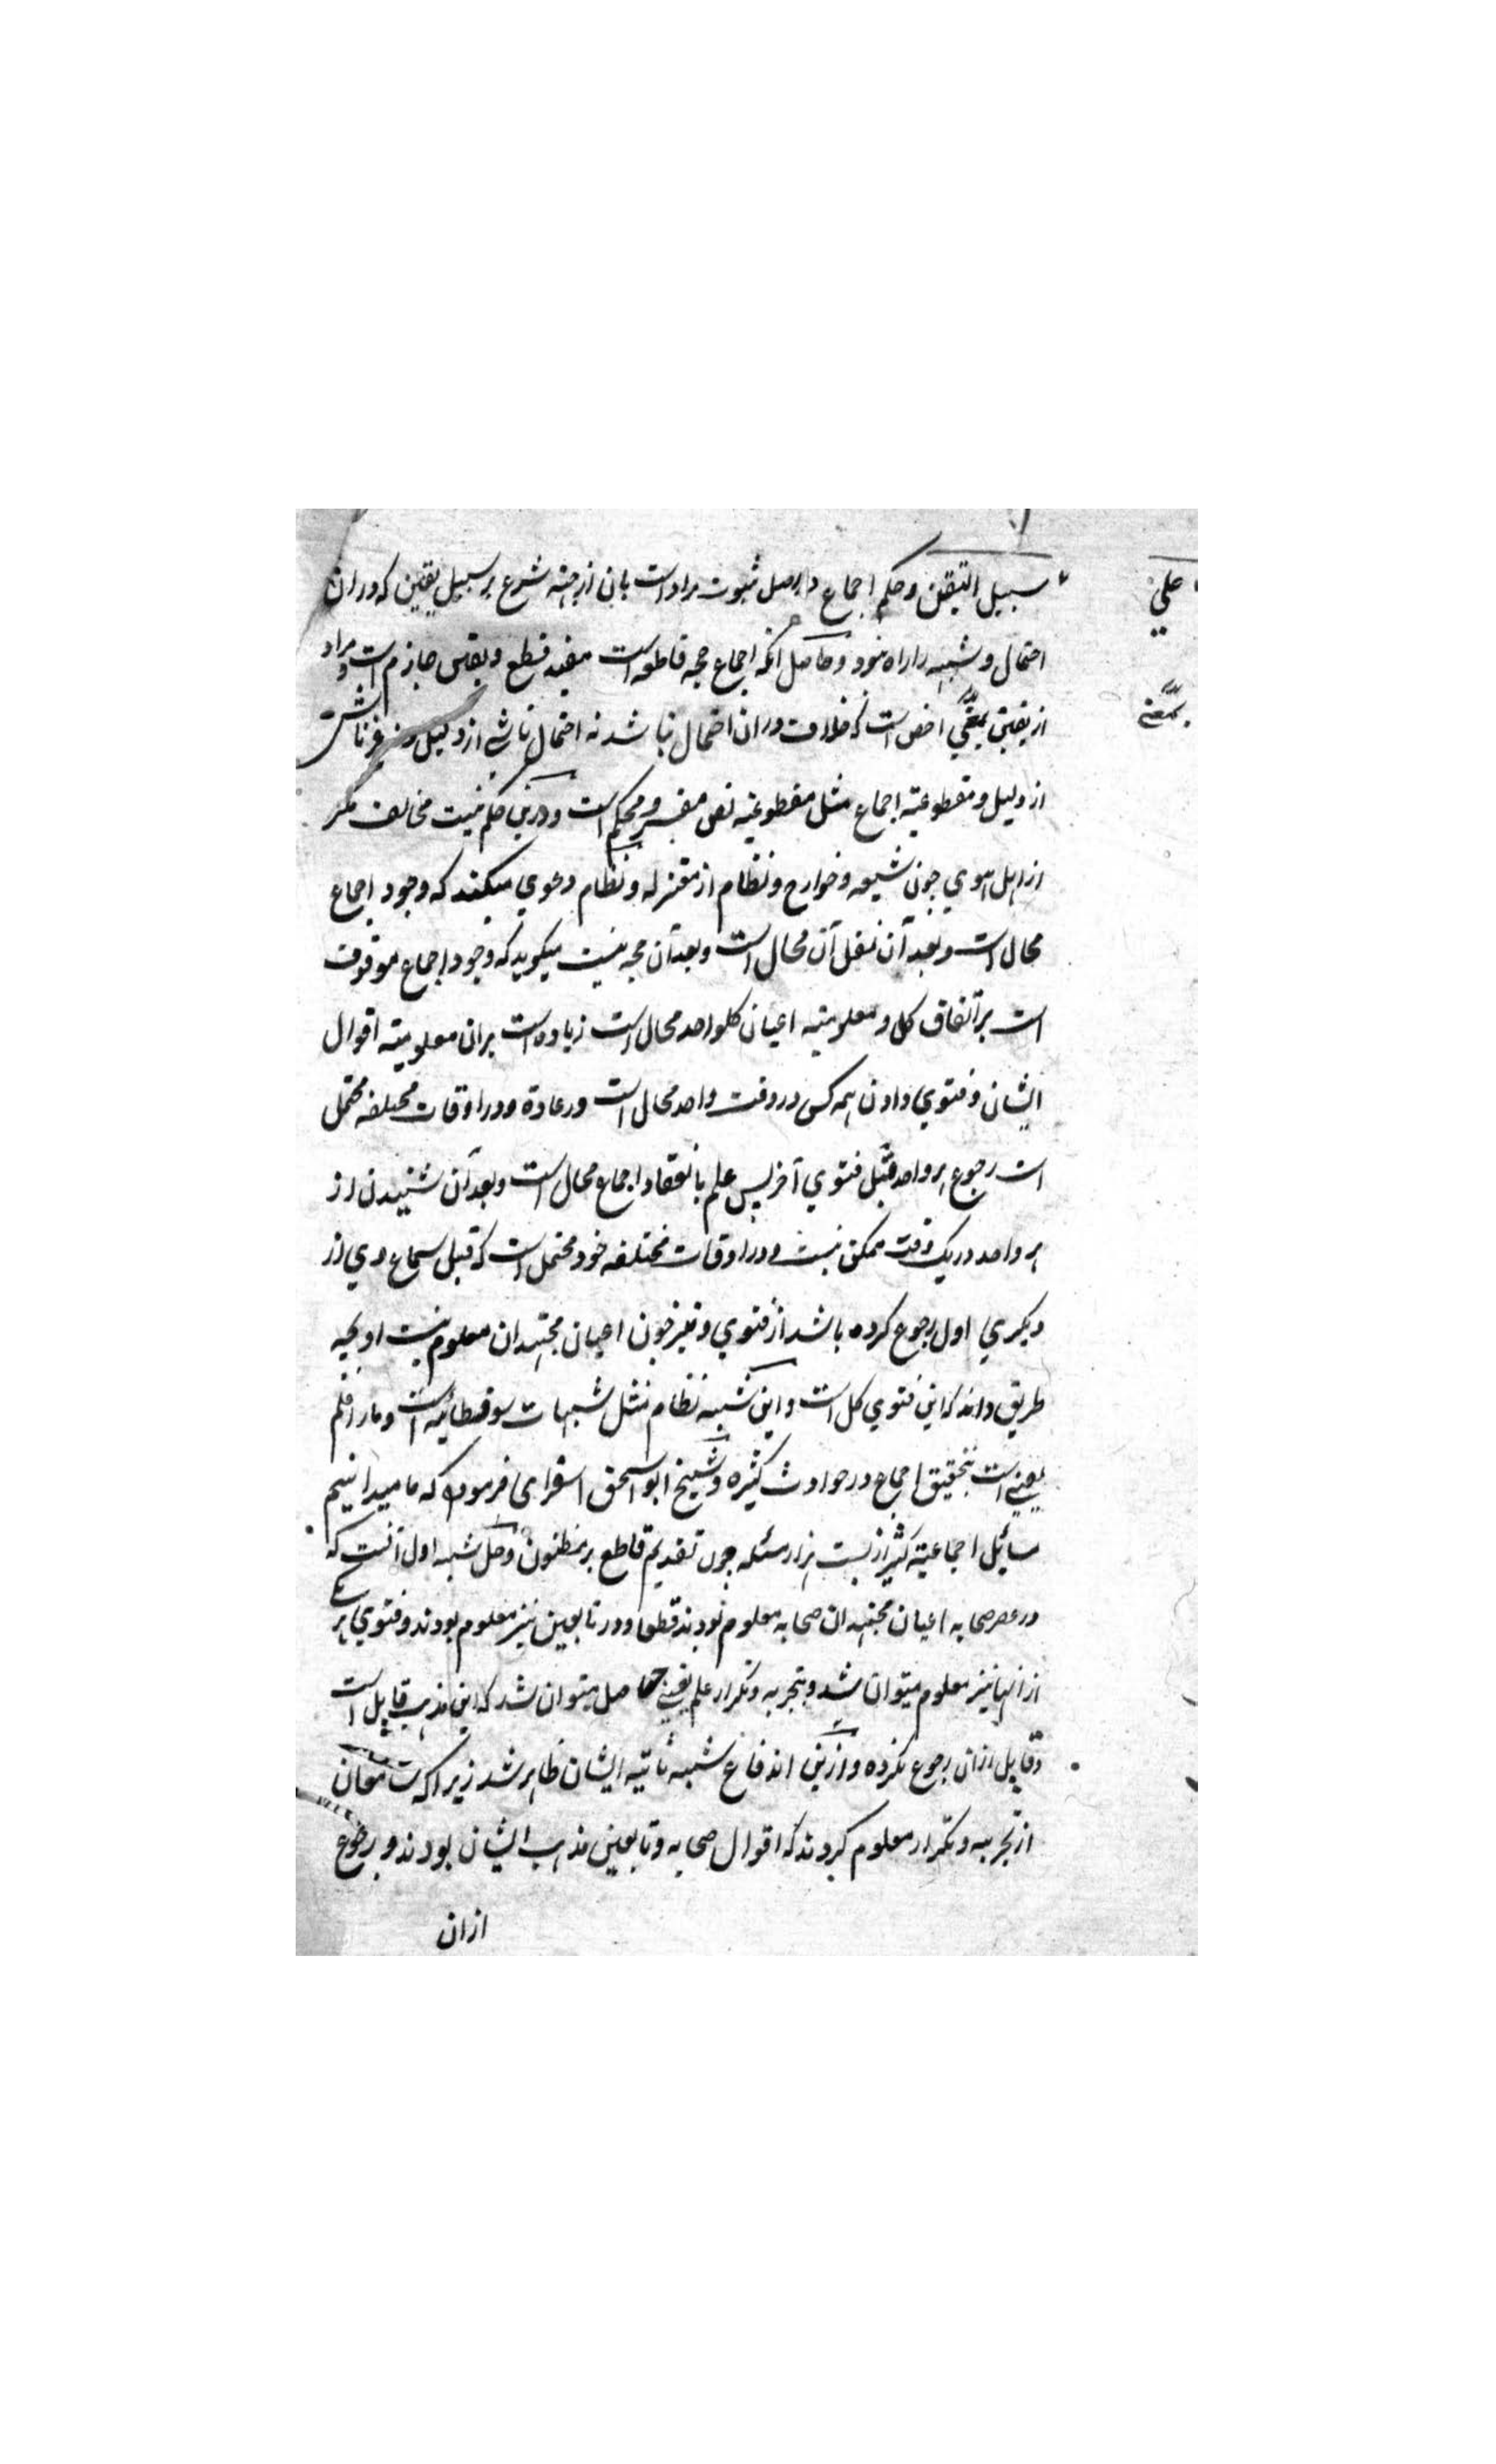 علي
سبيل التيقن وحكم اجماع در اصل ثبوت مراد است بان از جهة شرع بر سبيل يقين كه دران
احتمال و شبهه را راه نبود و حاصل آنكه اجماع حجه قاطعه است مفيد قطع و يقين جازم است و مراد
بمعني
از يقين بمعني اخص است كه خلاف دران احتمال نباشد نه احتمال ناشي از دليل نه غير ناشي
از دليل و مقطوعية اجماع مثل مقطوعية نص مفسر و محكم است و درين حكم نيست مخالف مگر
از اهل هوي چون شيعه و خوارج و نظام از معتزله و نظام دعوي ميكند كه وجود اجماع
محال است و بعد آن نقل آن محال است و بعد آن حجه نيست ميگويد كه وجود اجماع موقوف
است بر اتفاق كل و معلوميته اعيان كلواحد محال است زياده است بران معلوميته اقوال
ايشان و فتوي دادن همه كس در وقت واحد محال است در عادة و در اوقات مختلفه محتمل
است رجوع هر واحد قبل فتوي آخر پس علم بانعقاد اجماع محال است و بعد آن شنيدن از
هر واحد در يك وقت ممكن نيست و در اوقات مختلفه خود محتمل است كه قبل سماع وي از
ديگري اول رجوع كرده باشد از فتوي و نيز چون اعيان مجتهدان معلوم نيست او بچه
طريق داند كه اين فتوي كل است و اين شبهه نظام مثل شبهات سوفسطائيه است و ما را علم
يقيني است بتحقيق اجماع در حوادث كثيره و شيخ ابو اسحق اسفرايي فرموده كه ما ميدانيم
مسائل اجماعية كثير از بست هزار مسئله چون تقديم قاطع بر مظنون و حل شبهه اول آنست كه
در عصر صحابه اعيان مجتهدان صحابه معلوم بودند قطعا و در تابعين نيز معلوم بودند و فتوي هر يكي
از انها نيز معلوم ميتوان شد و بتجربه و تكرار علم يقيني حاصل ميتوان شد كه اين مذهب قايل است
و قايل ازان رجوع نكرده و ازين اندفاع شبهه ثانيه ايشان ظاهر شد زيرا كه سامعان
از تجربه و تكرار معلوم كردند كه اقوال صحابه و تابعين مذهب ايشان بودند و رجوع
ازان